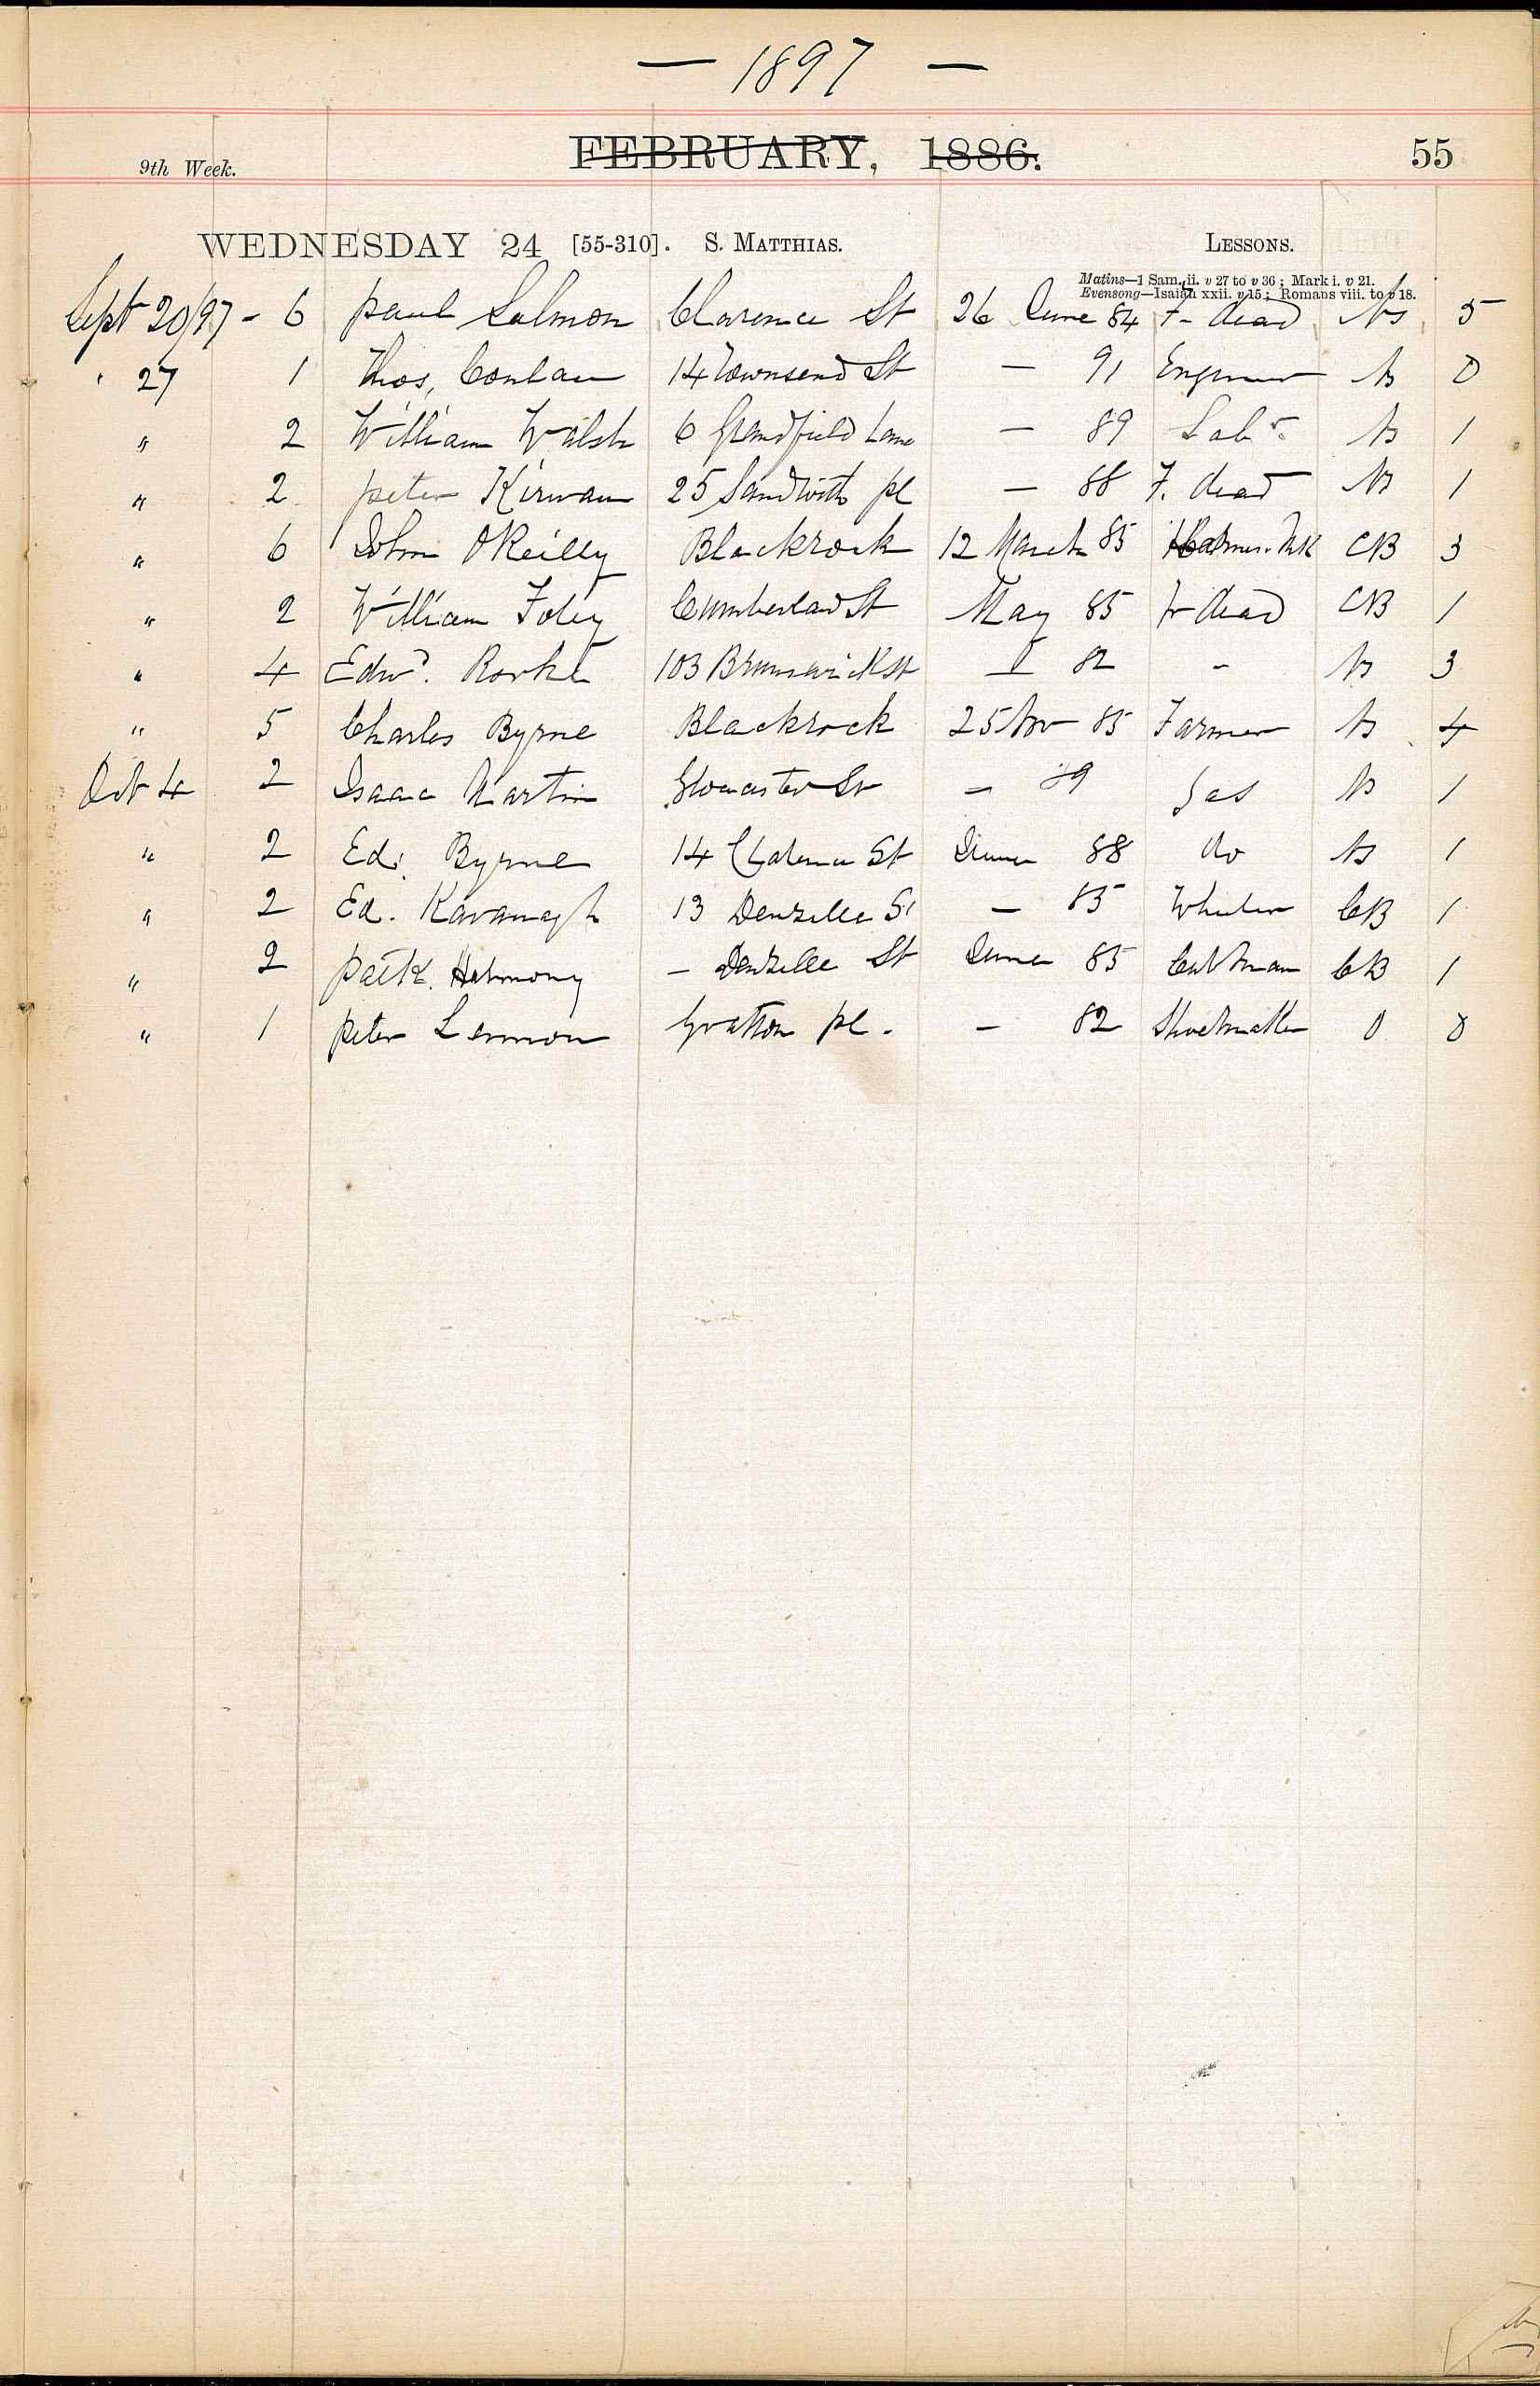 — 1897 —
9th Week. FEBRUARY, 1886. 55
WEDNESDAY 24 [55-310]. S. MATTHIAS. LESSONS.
Matins—1 Sam. ii. v 27 to v 36; Mark i. v 21.
Evensong—Isaiah xxii. v 15; Romans viii. to v 18.
Sept 20/97 - 6 Paul Salmon Clarence St 26 June 84 F- dead NS 5
" 27 1 Thos. Conlan 14 Townsend St — 91 Engineer NS 0
" 2 William Walsh 6 Grandfield Lane — 89 Labr. NS 1
" 2 Peter Kirwan 25 Sandwith pl — 88 F. dead NS 1
" 6 John OReilly Blackrock 12 March 85 CB 3
" 2 William Foley Cumberland St May 85 Fr dead CB 1
" 4 Edwd. Rorke 103 Brunswick st — 82 - NS 3
" 5 Charles Byrne Blackrock 25 Nov 85 Farmer NS 4
Oct 4 2 Isaac Martin Gloucester St — 89 Gas NS 1
" 2 Ed. Byrne 14 Clarence St June 88 do NS 1
" 2 Ed. Kavanagh 13 Denzille St — 85 CB 1
" 2 Patk. Harmony — Denzille St June 85 Cabman CB 1
" 1 Peter Lennon Gratton pl. — 82 Shoemaker 0 0